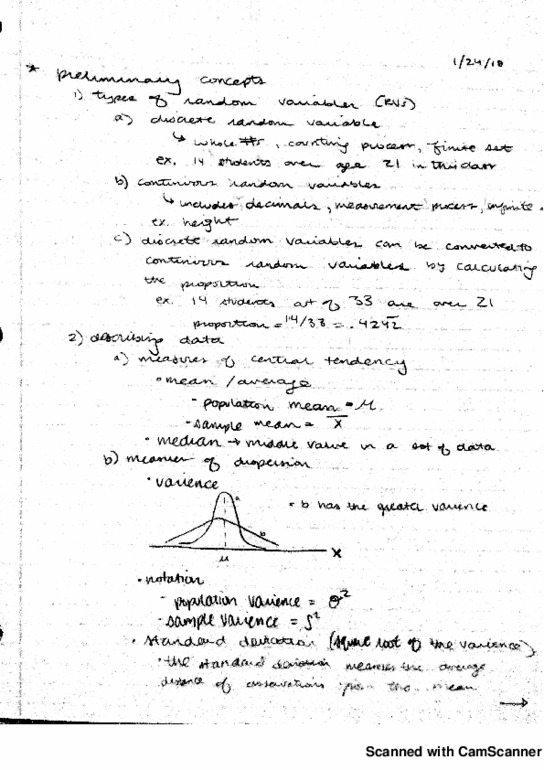 1/24/18
* preliminary concepts
1) types of random variables (RVs)
a) discrete random variable
↳ whole #s, counting process, finite set
ex. 14 students over age 21 in this class
b) continuous random variables
↳ includes decimals, measurement process, infinite
ex. height
c) discrete random variables can be converted to
continuous random variables by calculating
the proportion
ex. 14 students out of 33 are over 21
proportion = 14/33 = .4242
2) describing data
a) measures of central tendency
• mean / average
- population mean = μ
- sample mean = x̅
• median → middle value in a set of data
b) measures of dispersion
• varience
a
• b has the greater varience
b
μ
x
• notation
- population varience = σ²
- sample varience = s²
• standard deviation (square root of the varience)
• the standard deviation measures the average
distance of observations from the mean
→
Scanned with CamScanner